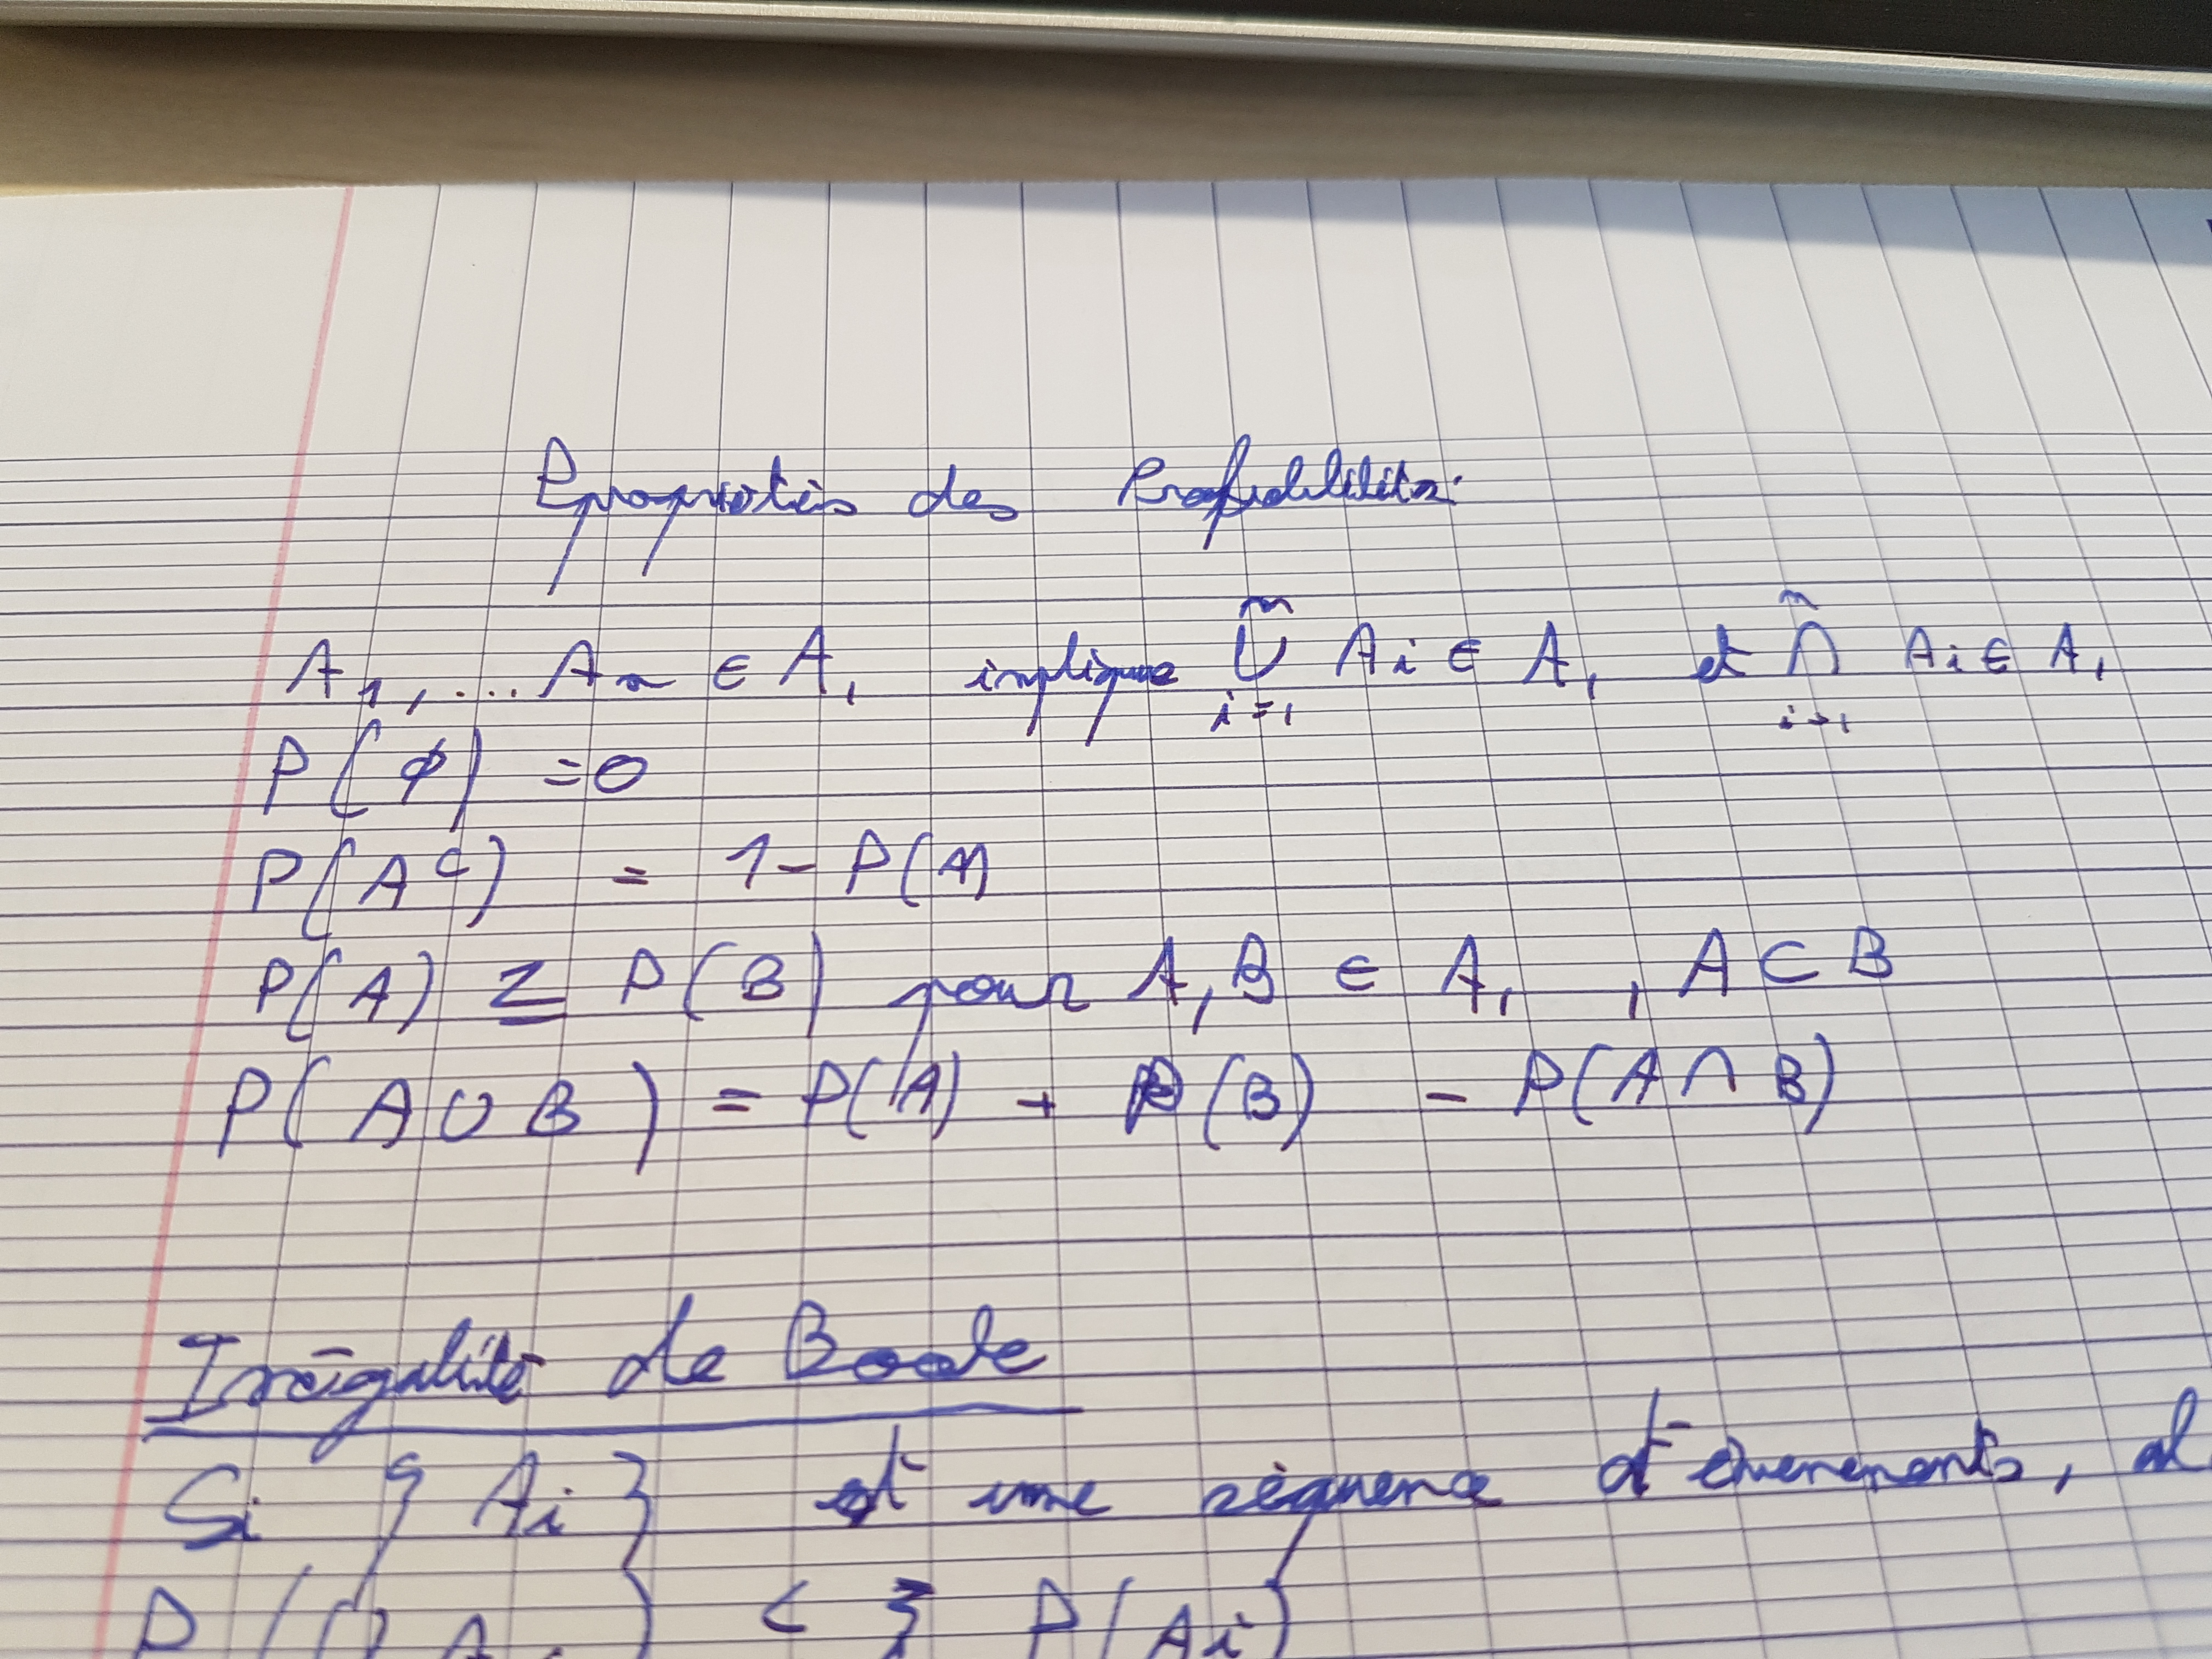 Propriétés des Probabilités.
A₁, .... Aₙ ∈ A, implique ⋃ᵢ₌₁ⁿ Ai ∈ A, et ⋂ᵢ₌₁ⁿ Ai ∈ A,
P(∅) = 0
P(Aᶜ) = 1 - P(A)
P(A) ≤ P(B) pour A, B ∈ A, , A ⊂ B
P(A ∪ B) = P(A) + P(B) - P(A ∩ B)
Inégalité de Boole
Si {Ai} est une séquence d'évènements,
P(Ai)